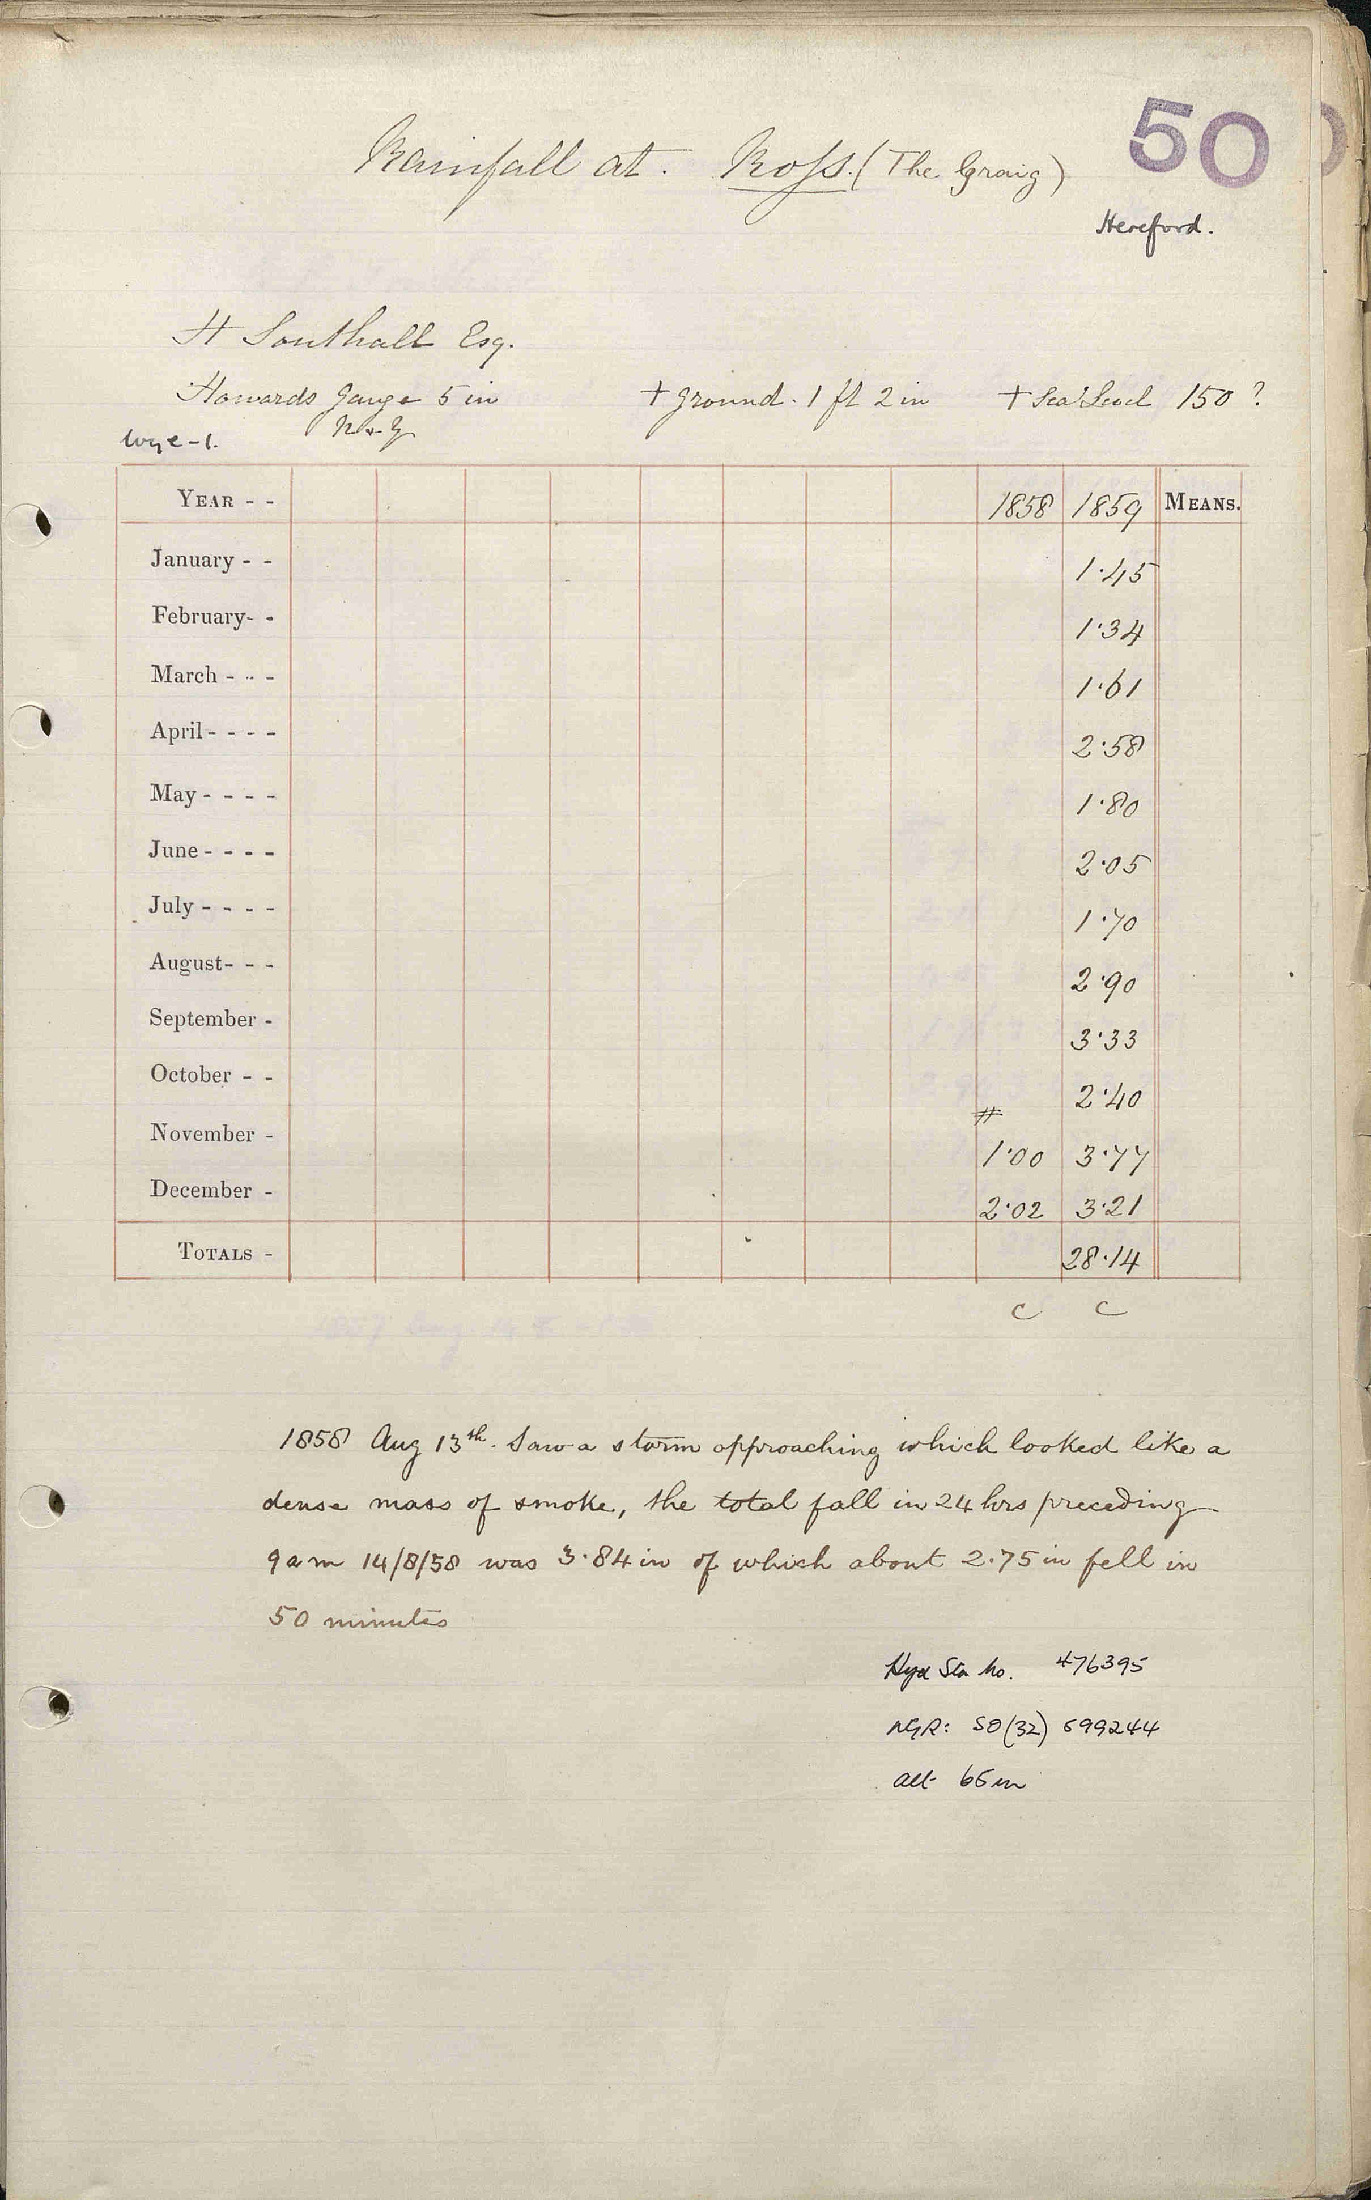 50
Rainfall at. Ross. (The Graig)
Hereford.
H Southall Esq.
Howards Gauge 5 in + ground. 1 ft 2 in + Sea Level 150 ?
Wye-1.
YEAR - - 1858 1859 MEANS.
January - - 1.45
February- - 1.34
March - - - 1.61
April - - - - 2.58
May - - - - 1.80
June - - - - 2.05
July - - - - 1.70
August- - - 2.90
September - 3.33
October - - 2.40
#
November - 1.00 3.77
December - 2.02 3.21
TOTALS - 28.14
c c
1858 Aug 13th. Saw a storm approaching which looked like a
dense mass of smoke, the total fall in 24 hrs preceding
9 a m 14/8/58 was 3.84 in of which about 2.75 in fell in
50 minutes
Hyd Sta No. 476395
NGR: SO (32) 599244
alt 65 m